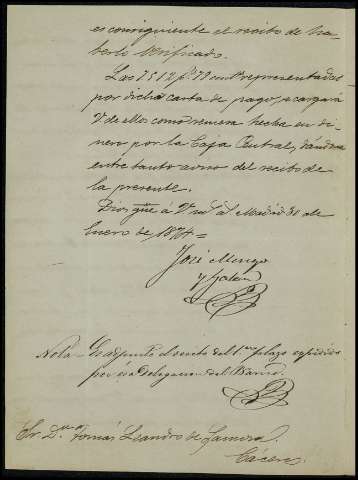 es consiguiente el recibo de ha-
berlo verificado.
Las 7512 p.s 79 cent.s representadas
por dicha carta de pago, se cargará
V. de ellos como remesa hecha en di-
nero por la Caja Central, dándome
entre tanto aviso del recibo de
la presente.
Dios gue á V. m.s a.s Madrid 31 de
Enero de 1874=
José Mengo
y Galan
Nota- Es adjunto el recibo del 1.er plazo expedido
por esa Delegacion del Banco.
Sr. D.n Tomás Leandro de Zamora.
Cáceres.